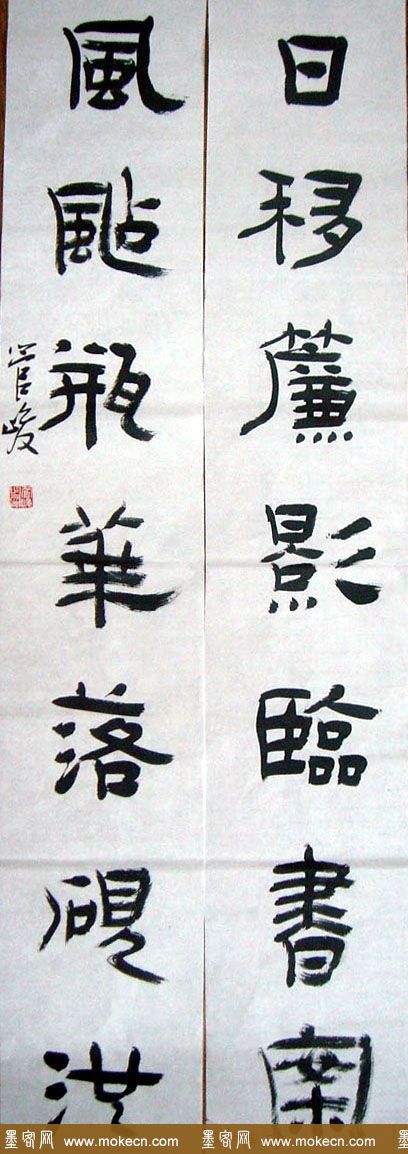 日移簾影臨書案
風颭瓶華落硯
管峻
墨客网 www.mokecn.com 墨客网 www.mokecn.com